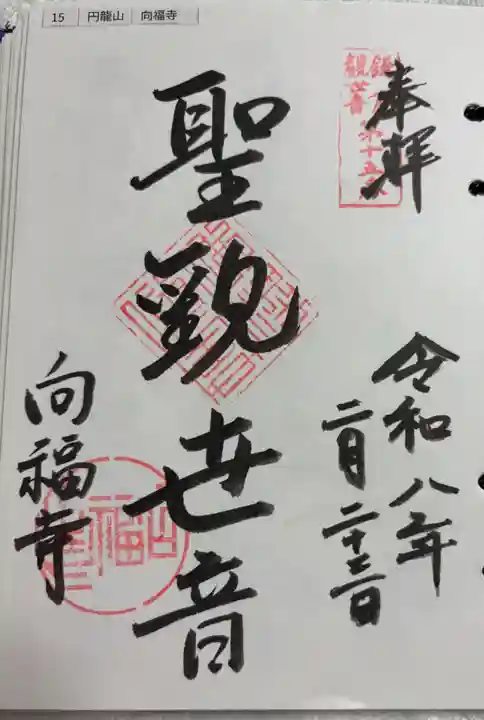 15 円龍山 向福寺
奉拝
令和八年
二月二十二日
聖観世音
向福寺